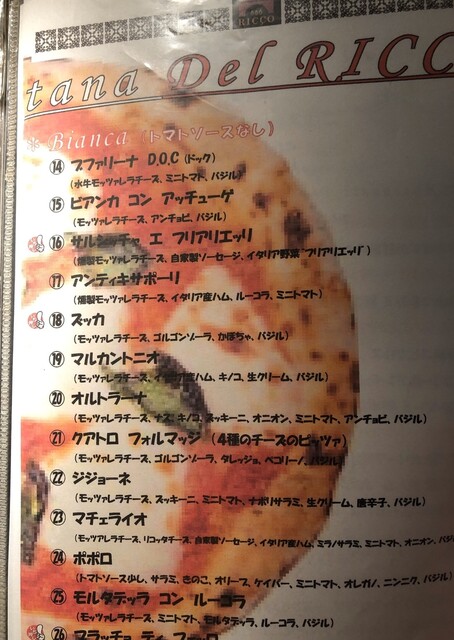 RICCO
tana Del RICC
* Bianca (トマトソースなし)
⑭ ブファリーナ D.O.C (ドック)
(水牛モッツァレラチーズ、ミニトマト、バジル)
⑮ ビアンカ コン アッチューゲ
(モッツァレラチーズ、アンチョビ、バジル)
⑯ サルシッチャ エ フリアリエッリ
(燻製モッツァレラチーズ、自家製ソーセージ、イタリア野菜"フリアリエッリ")
⑰ アンティキサポーリ
(燻製モッツァレラチーズ、イタリア産ハム、ルーコラ、ミニトマト)
⑱ ズッカ
(モッツァレラチーズ、ゴルゴンゾーラ、かぼちゃ、バジル)
⑲ マルカントニオ
(モッツァレラチーズ、イタリア産ハム、キノコ、生クリーム、バジル)
⑳ オルトラーナ
(モッツァレラチーズ、ナス、キノコ、ズッキーニ、オニオン、ミニトマト、アンチョビ、バジル)
㉑ クアトロ フォルマッジ (4種のチーズのピッツァ)
(モッツァレラチーズ、ゴルゴンゾーラ、タレッジョ、ペコリーノ、バジル)
㉒ ジジョーネ
(モッツァレラチーズ、ズッキーニ、ミニトマト、ナポリサラミ、生クリーム、唐辛子、バジル)
㉓ マチェライオ
(モッツアレラチーズ、リコッタチーズ、自家製ソーセージ、イタリア産ハム、ミラノサラミ、ミニトマト、オニオン、バジ
㉔ ポポロ
(トマトソース少し、サラミ、きのこ、オリーブ、ケイパー、ミニトマト、オレガノ、ニンニク、バジル
㉕ モルタデッラ コン ルーコラ
(モッツァレラチーズ、ミニトマト、モルタデッラ、ルーコラ、バジル)
㉖